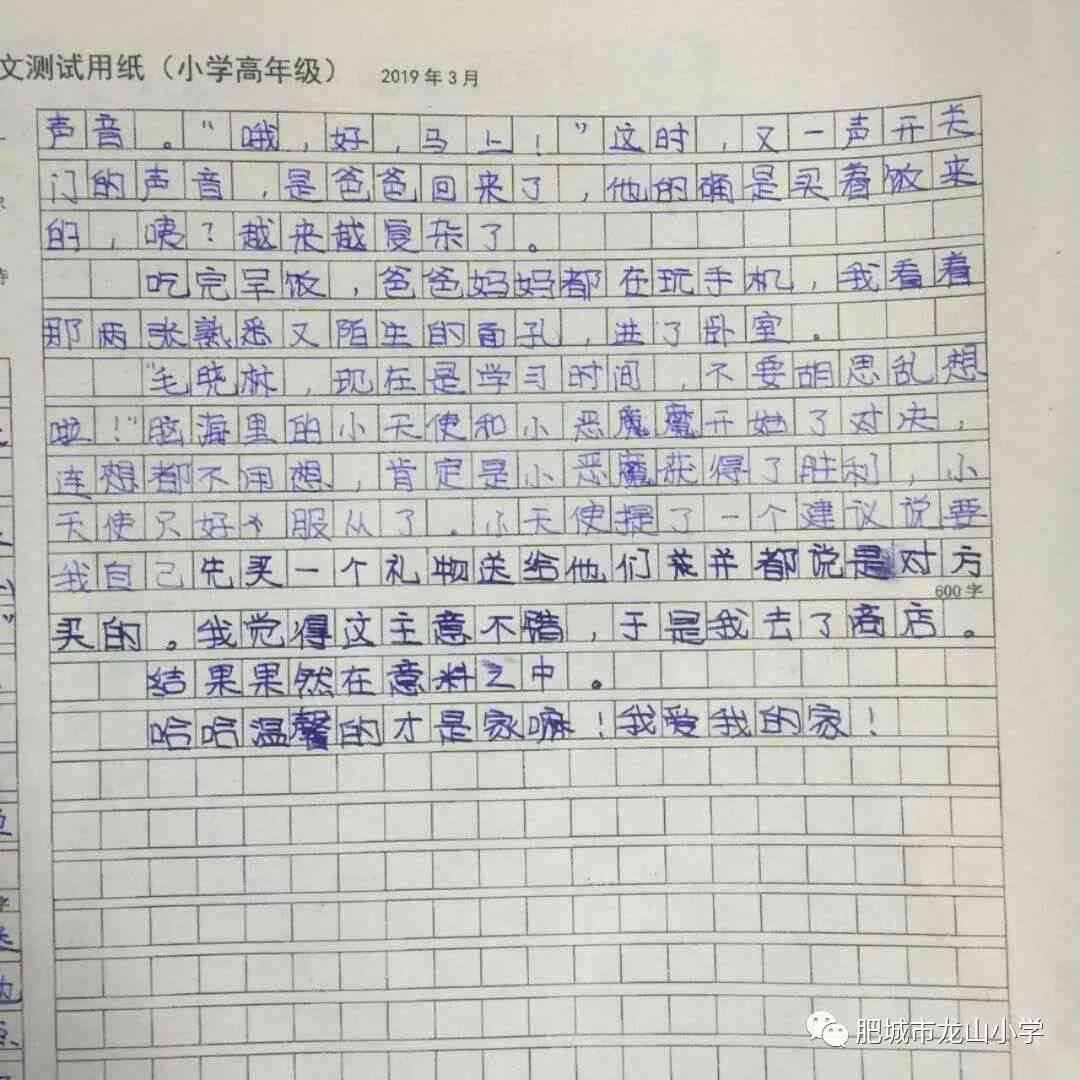 文测试用纸（小学高年级） 2019年3月
声音。“哦，好，马上！”这时，又一声开关
门的声音，是爸爸回来了，他的确是买着饭来
的，咦？越来越复杂了。
吃完早饭，爸爸妈妈都在玩手机，我看着
那两张熟悉又陌生的面孔，进了卧室。
“毛晓林，现在是学习时间，不要胡思乱想
啦！”脑海里的小天使和小恶魔魔开始了对决，
连想都不用想，肯定是小恶魔获得了胜利，小
天使只好服从了。小天使提了一个建议说要
我自己先买一个礼物送给他们并都说是对方
600字
买的。我觉得这主意不错，于是我去了商店。
结果果然在意料之中。
哈哈温馨的才是家嘛！我爱我的家！
肥城市龙山小学